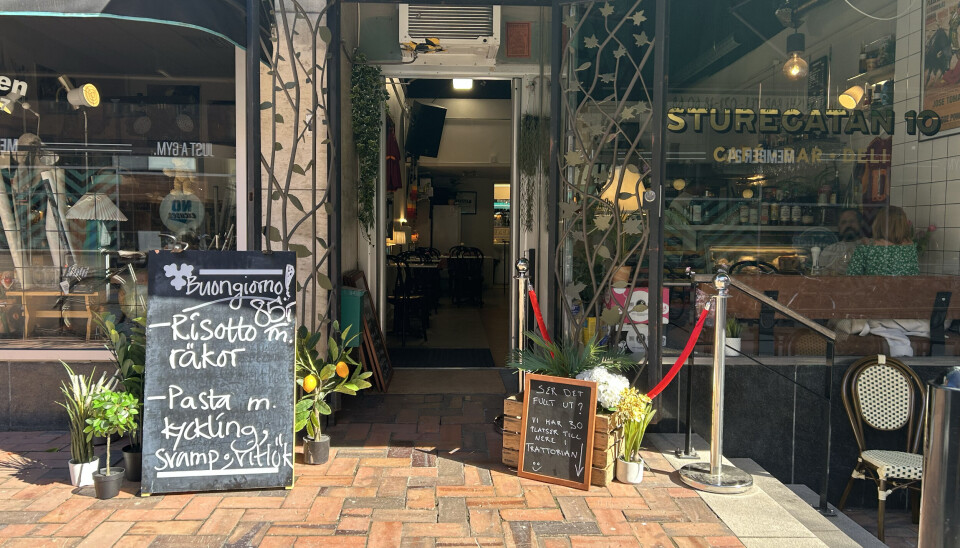 Buongiorno!
85:-
-Risotto m.
räkor
-Pasta m.
kyckling,
svamp & vitlök
SER DET
FULLT UT?
VI HAR 30
PLATSER TILL
NERE I
TRATTORIAN
STUREGATAN 10
CAFÉ · BAR · DELI
MEMBER24
JUST A GYM.
NO